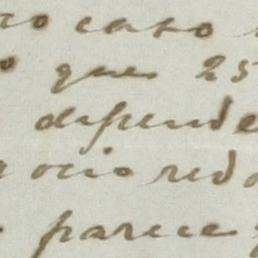 co caso
que 25
depende
ocio redo
parece